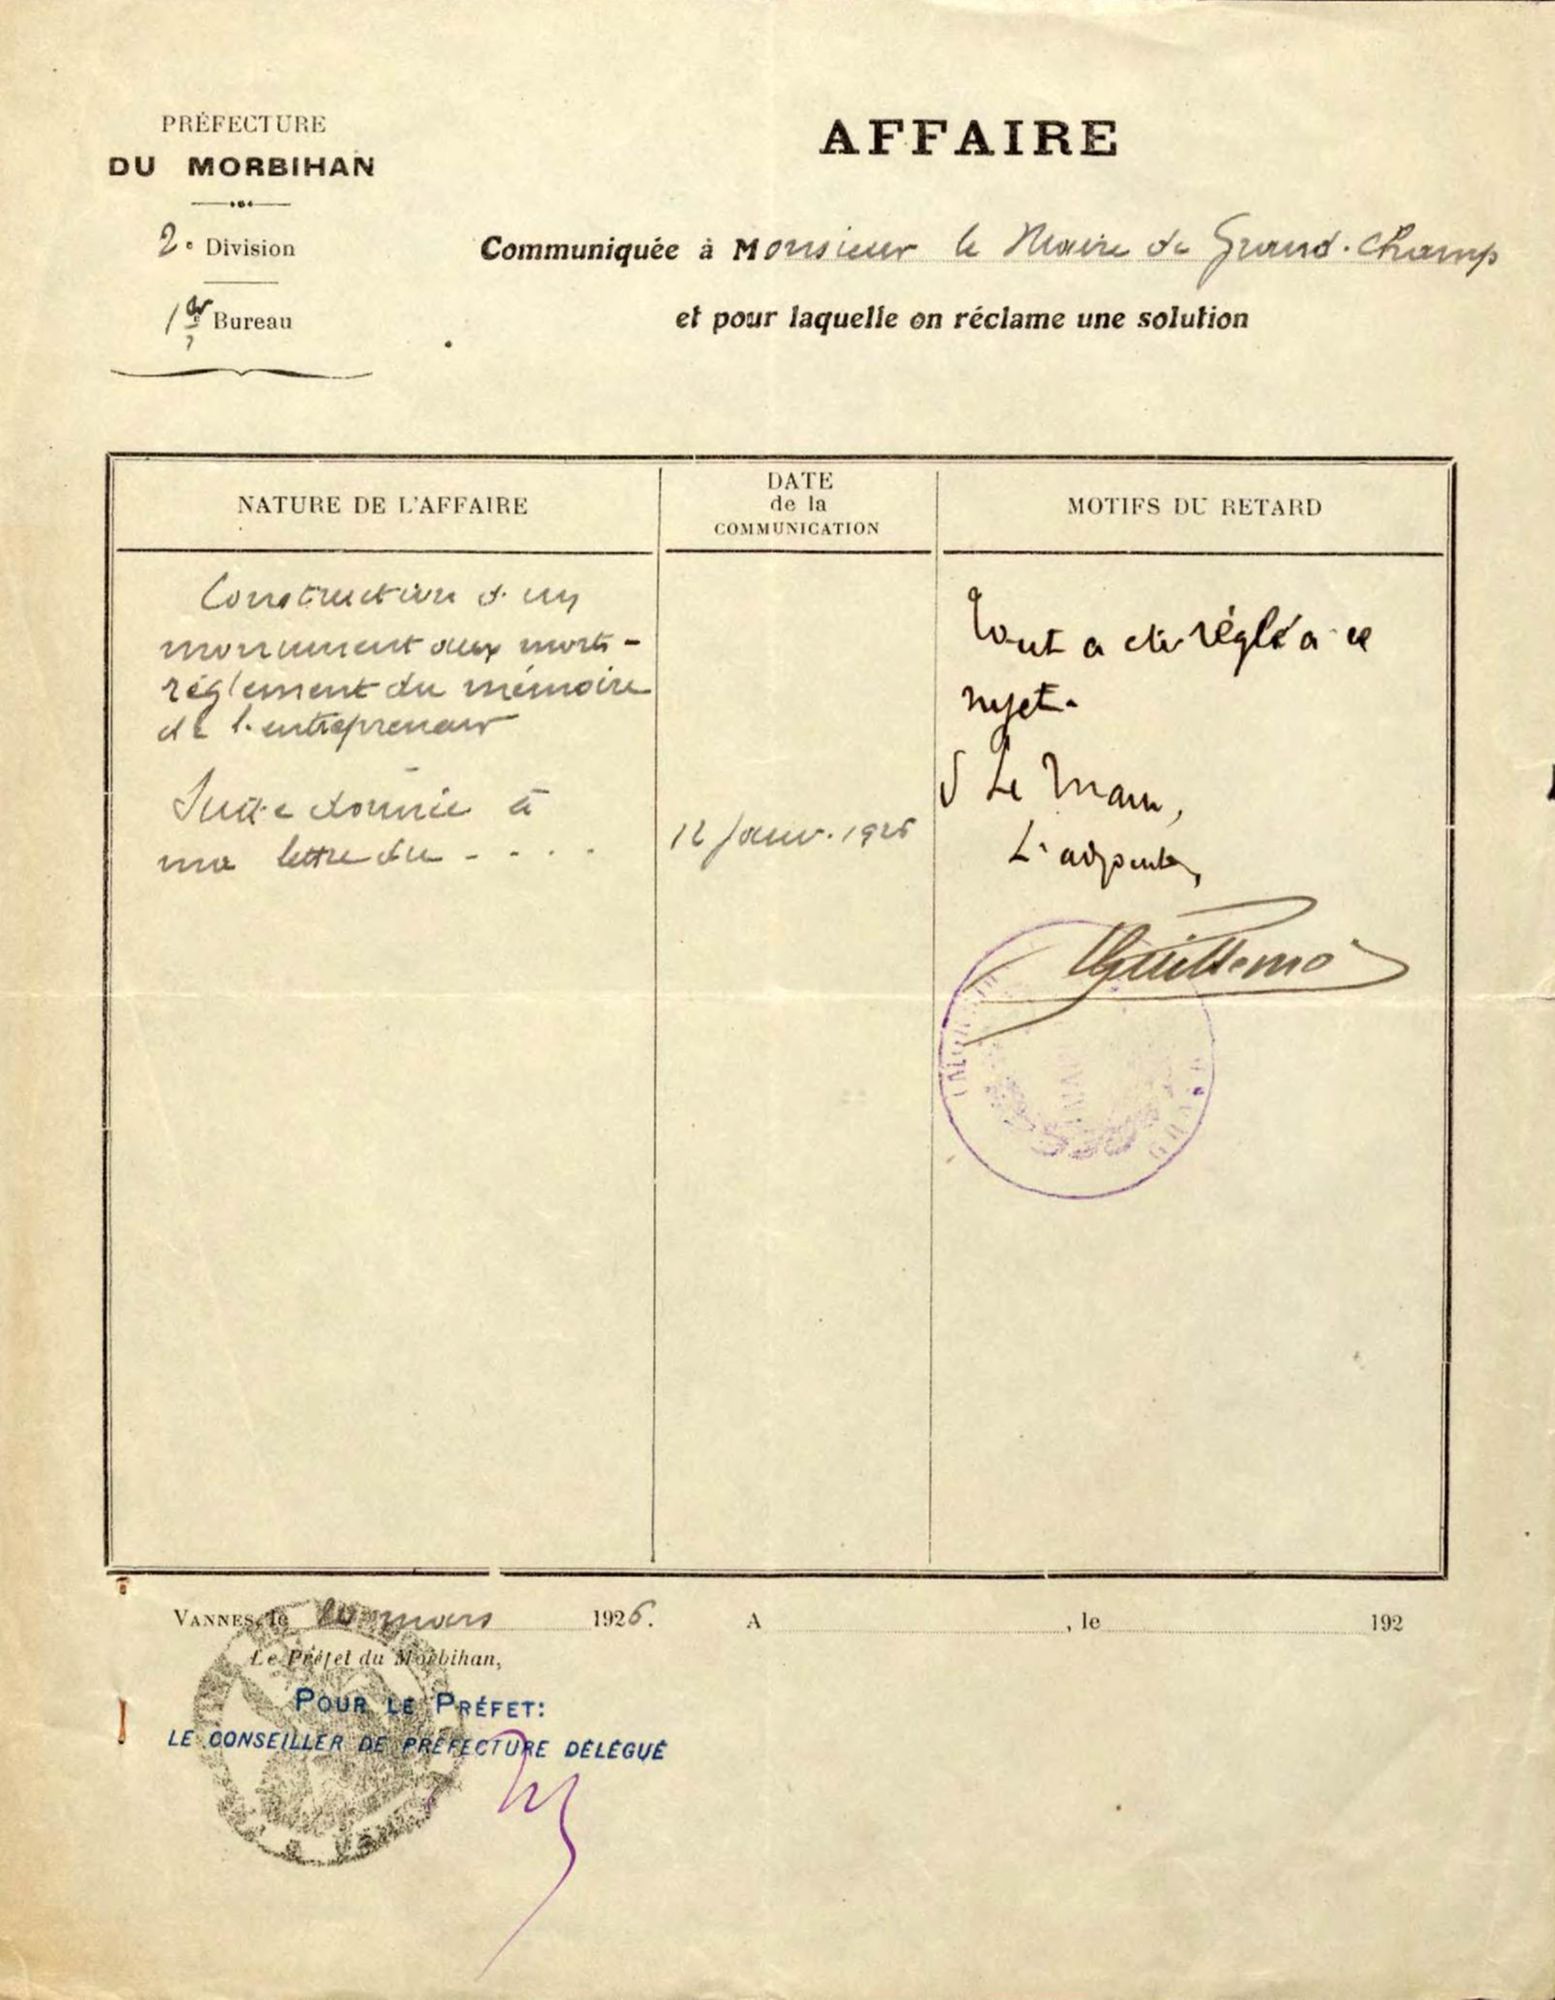 PRÉFECTURE
DU MORBIHAN
2e Division
1er Bureau
AFFAIRE
Communiquée à Monsieur le Maire de Grand-Champ
et pour laquelle on réclame une solution
NATURE DE L'AFFAIRE
DATE
de la
COMMUNICATION
MOTIFS DU RETARD
Construction d'un
monument aux morts -
règlement du mémoire
de l'entrepreneur
Suite donnée à
ma lettre du - - . .
12 Janv. 1926
Tout a été réglé à ce
sujet.
Le Maire,
L'adjoint,
Guillemo
VANNES, le mars 1926.
Le Préfet du Morbihan,
POUR LE PRÉFET:
LE CONSEILLER DE PRÉFECTURE DÉLÉGUÉ
A , le 192